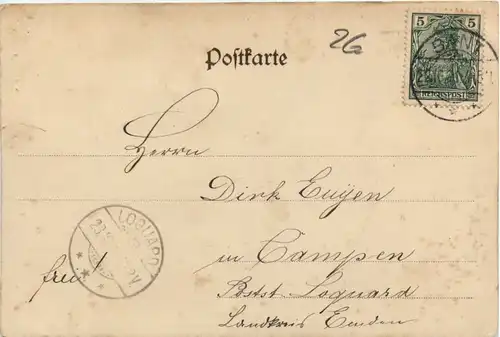 26
5 5
REICHSPOST
BANT
Postkarte
Herrn
Dirk Eujen
in Campen
LOQUARD
23
frei!
Postst. Loquard
Landkreis Emden